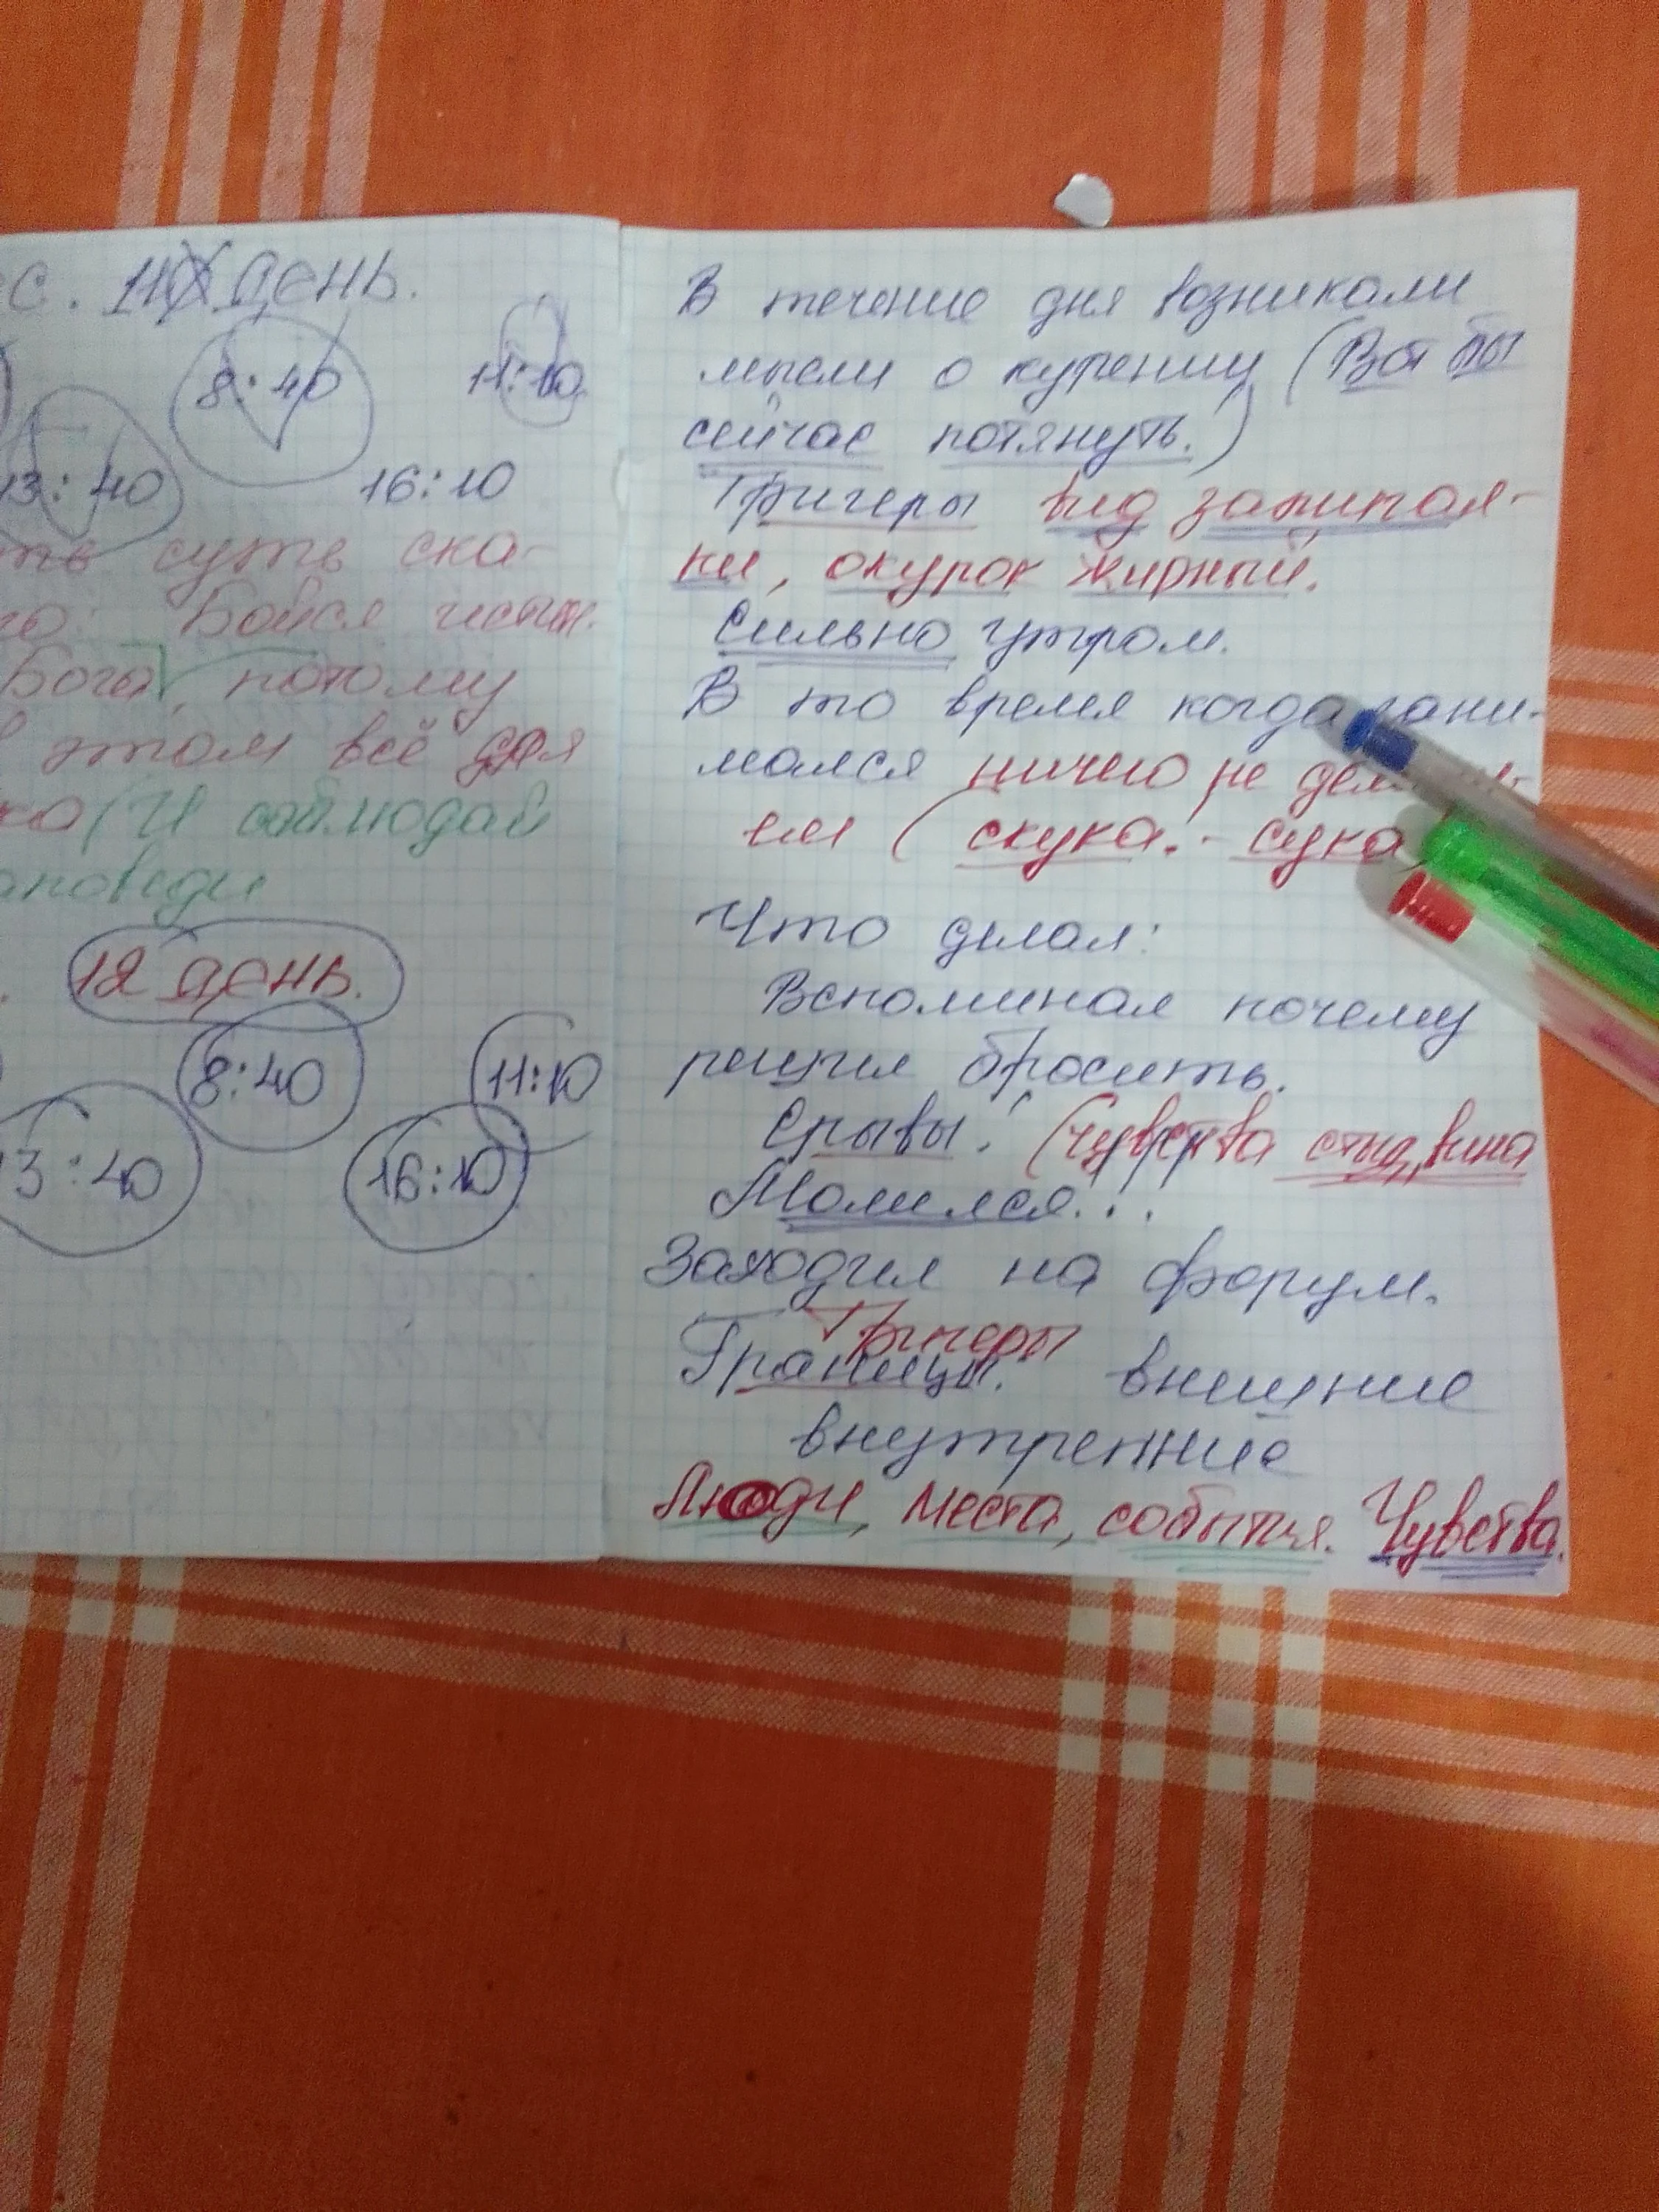 с. 11 День.
8:40 11:10
13:40 16:10
ть суть ска-
го: Бойся истин.
Бога, потому
в этом всё для
ка (И соблюдай
аповеди
12 День.
8:40 11:10
13:40 16:10
В течение дня возникали
мысли о курении (Вот бы
сейчас потянуть.)
Тригеры вид зажигал-
ки, окурок жирный.
Сильно утром.
В то время когда зани-
мался ничего не
ем (скука. - сука
Что делал:
Вспоминал почему
решил бросить.
Срывы. (чувства стыд, вина
Молился...
Заходил на форум.
Тригеры
Границы: внешние
внутренние
Люди, места, события. Чувства.